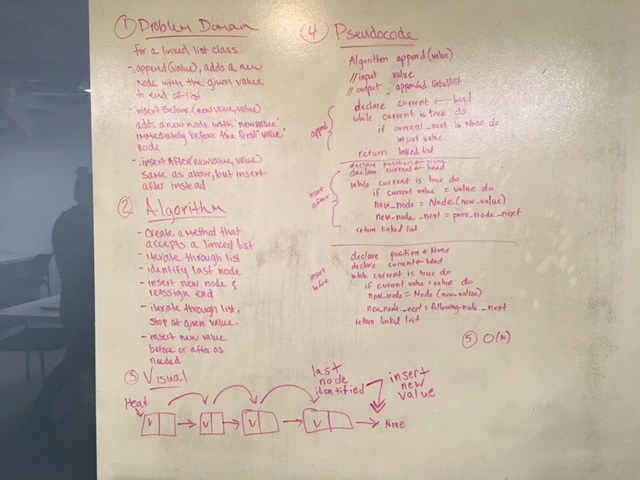 ① Problem Domain
for a linked list class
- append(value), adds a new
node with the given value
to end of list
- insert Before (new value, value)
adds a new node with 'new value'
immediately before the first 'value'
node
- insert After (new value, value)
same as above, but insert
after instead
② Algorithm
- Create a method that
accepts a linked list
- iterate through list
- identify last node
- insert new node &
reassign end
- iterate through list,
stop at given value
- insert new value
before or after as
needed
③ Visual
Head
last
node
identified
insert
new
value
V V V V None
④ Pseudocode
Algorithm append (value)
// input value
// output appended linked list
append
declare current ← head
while current is true do
if current_next is None do
insert value
return linked list
insert
after
declare position ← None
declare current ← head
while current is true do
if current value = value do
new_node = Node (new_value)
new_node_next = prev_node_next
return linked list
insert
before
declare position ← None
declare current ← head
while current is true do
if current value = value do
new_node = Node (new_value)
new_node_next = following_node_next
return linked list
⑤ O(N)